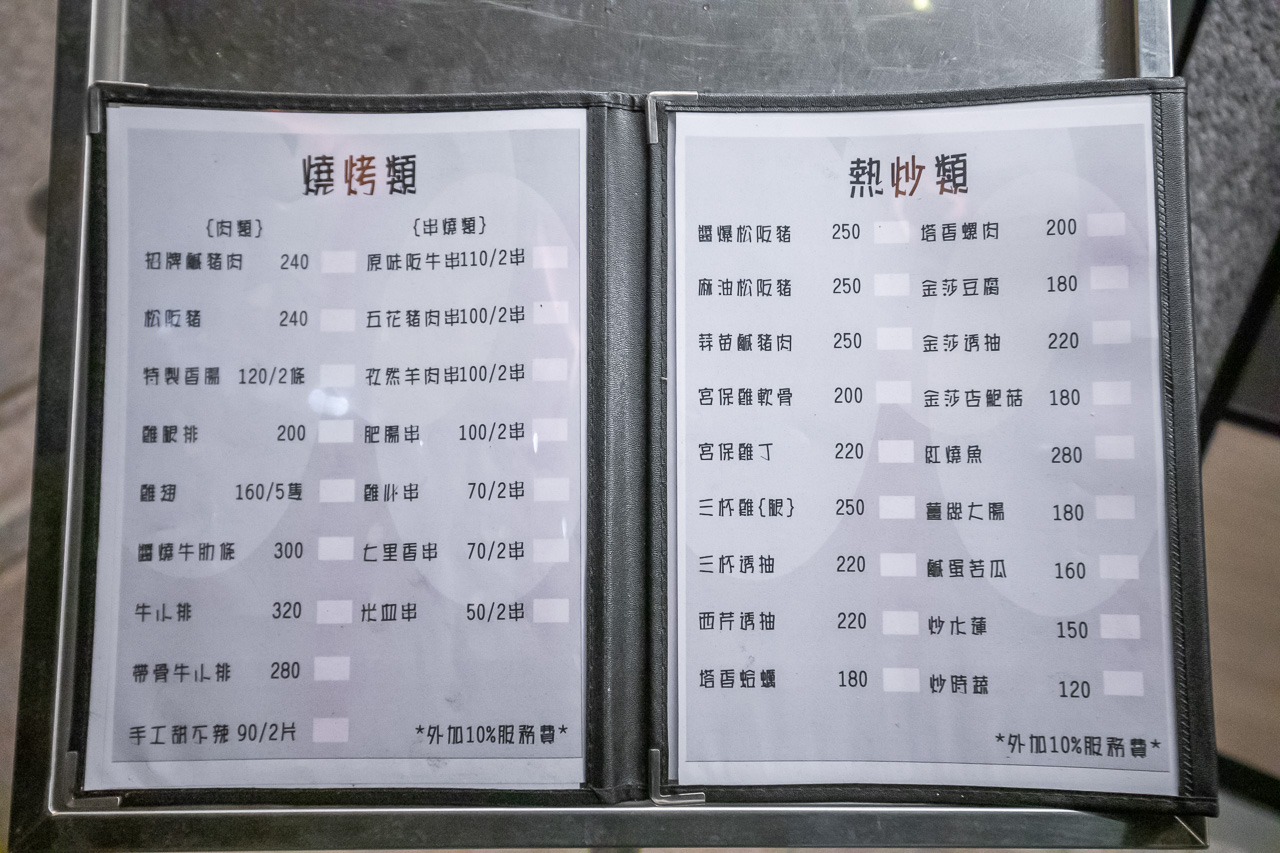 燒烤類
{肉類} {串燒類}
招牌鹹豬肉 240 原味阪牛串110/2串
松阪豬 240 五花豬肉串100/2串
特製香腸 120/2條 孜然羊肉串100/2串
雞腿排 200 肥腸串 100/2串
雞翅 160/5隻 雞心串 70/2串
醬燒牛肋條 300 七里香串 70/2串
牛小排 320 米血串 50/2串
帶骨牛小排 280
手工甜不辣 90/2片 *外加10%服務費*
熱炒類
醬爆松阪豬 250 塔香螺肉 200
麻油松阪豬 250 金莎豆腐 180
蒜苗鹹豬肉 250 金莎透抽 220
宮保雞軟骨 200 金莎杏鮑菇 180
宮保雞丁 220 紅燒魚 280
三杯雞{腿} 250 薑絲大腸 180
三杯透抽 220 鹹蛋苦瓜 160
西芹透抽 220 炒水蓮 150
塔香蛤蠣 180 炒時蔬 120
*外加10%服務費*